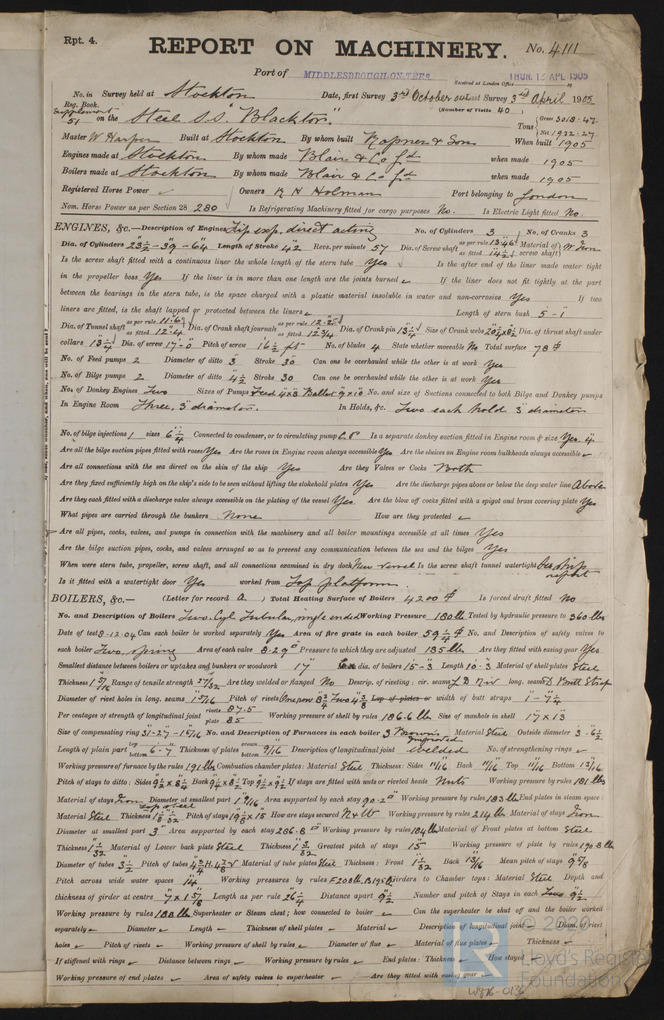 Rpt. 4.
REPORT ON MACHINERY. No. 4111
Port of MIDDLESBROUGH-ON-TEES
Received at London Office THUR. 13 APL 1905
No. in Survey held at Stockton Date, first Survey 3rd October Last Survey 3rd April 1905
Reg. Book. (Number of Visits 40)
Supplement 51 on the Steel S.S. "Blackton" Tons { Gross 3018.47 Net 1932.27
Master W Harper Built at Stockton By whom built Ropner & Sons When built 1905
Engines made at Stockton By whom made Blair & Co Ltd when made 1905
Boilers made at Stockton By whom made Blair & Co Ltd when made 1905
Registered Horse Power Owners R H Holman Port belonging to London
Nom. Horse Power as per Section 28 280 Is Refrigerating Machinery fitted for cargo purposes No. Is Electric Light fitted No.
ENGINES, &c.—Description of Engines Trip exp. direct acting No. of Cylinders 3 No. of Cranks 3
Dia. of Cylinders 23½-39-64 Length of Stroke 42 Revs. per minute 57 Dia. of Screw shaft as per rule 13.46 as fitted 14½ Material of screw shaft W. Iron
Is the screw shaft fitted with a continuous liner the whole length of the stern tube Yes Is the after end of the liner made water tight
in the propeller boss Yes If the liner is in more than one length are the joints burned If the liner does not fit tightly at the part
between the bearings in the stern tube, is the space charged with a plastic material insoluble in water and non-corrosive Yes If two
liners are fitted, is the shaft lapped or protected between the liners Length of stern bush 5-1
Dia. of Tunnel shaft as per rule 11.67 as fitted 12¼ Dia. of Crank shaft journals as per rule 12.25 as fitted 12¾ Dia. of Crank pin 13¼ Size of Crank webs Dia. of thrust shaft under
collars 13¼ Dia. of screw 17-0 Pitch of screw 16½ ft No. of blades 4 State whether moveable No Total surface 78
No. of Feed pumps 2 Diameter of ditto 3 Stroke 30 Can one be overhauled while the other is at work Yes
No. of Bilge pumps 2 Diameter of ditto 4½ Stroke 30 Can one be overhauled while the other is at work Yes
No. of Donkey Engines Two Sizes of Pumps Feed 4x8 Ballast 9x10 No. and size of Suctions connected to both Bilge and Donkey pumps
In Engine Room Three, 3" diameter. In Holds, &c. Two each hold 3" diameter
No. of bilge injections 1 sizes 6¼ Connected to condenser, or to circulating pump C.P. Is a separate donkey suction fitted in Engine room & size Yes. 4
Are all the bilge suction pipes fitted with roses Yes Are the roses in Engine room always accessible Yes Are the sluices on Engine room bulkheads always accessible
Are all connections with the sea direct on the skin of the ship Yes Are they Valves or Cocks Both
Are they fixed sufficiently high on the ship's side to be seen without lifting the stokehold plates Yes Are the discharge pipes above or below the deep water line Above
Are they each fitted with a discharge valve always accessible on the plating of the vessel Yes Are the blow off cocks fitted with a spigot and brass covering plate Yes
What pipes are carried through the bunkers None How are they protected
Are all pipes, cocks, valves, and pumps in connection with the machinery and all boiler mountings accessible at all times Yes
Are the bilge suction pipes, cocks, and valves arranged so as to prevent any communication between the sea and the bilges Yes
When were stern tube, propeller, screw shaft, and all connections examined in dry dock New Vessel Is the screw shaft tunnel watertight See ship report
Is it fitted with a watertight door Yes worked from Top platform
BOILERS, &c.— (Letter for record A.) Total Heating Surface of Boilers 4200 Is forced draft fitted No
No. and Description of Boilers Two Cyl Tubular, single ended Working Pressure 180 lb Tested by hydraulic pressure to 360 lbs
Date of test 8-12-04 Can each boiler be worked separately Yes Area of fire grate in each boiler 59¼ No. and Description of safety valves to
each boiler Two, spring Area of each valve 8.29 Pressure to which they are adjusted 185 lbs Are they fitted with easing gear Yes
Smallest distance between boilers or uptakes and bunkers or woodwork 17" dia. of boilers 15-3 Length 10-3 Material of shell plates Steel
Thickness 1 5/16 Range of tensile strength 27/32 Are they welded or flanged No Descrip. of riveting: cir. seams L D Riv long. seams D Butt Strap
Diameter of rivet holes in long. seams 1 5/16 Pitch of rivets width of butt straps 1-7¼
Per centages of strength of longitudinal joint rivets 87.5 plate 85 Working pressure of shell by rules 186.6 lb Size of manhole in shell 17x13
Size of compensating ring 31-27-15/16 No. and Description of Furnaces in each boiler 3 Brown's improved Material Steel Outside diameter 3-6½
Length of plain part top bottom 6-7 Thickness of plates crown bottom 9/16 Description of longitudinal joint welded No. of strengthening rings
Working pressure of furnace by the rules 191 lb Combustion chamber plates: Material Steel Thickness: Sides 11/16 Back 11/16 Top 11/16 Bottom 13/16
Pitch of stays to ditto: Sides Back Top If stays are fitted with nuts or riveted heads Nuts Working pressure by rules 181 lbs
Material of stays Iron Diameter at smallest part Area supported by each stay 90.2 Working pressure by rules 183 lb End plates in steam space:
Material Steel Thickness Pitch of stays How are stays secured N & W Working pressure by rules 214 lb Material of stays Iron
Diameter at smallest part 3" Area supported by each stay 286.8 Working pressure by rules 184 lb Material of Front plates at bottom Steel
Thickness 1 1/32 Material of Lower back plate Steel Thickness 1 3/32 Greatest pitch of stays 15 Working pressure of plate by rules 190.8 lb
Diameter of tubes 3½ Pitch of tubes Material of tube plates Steel Thickness: Front 1 1/32 Back 13/16 Mean pitch of stays 9 5/8
Pitch across wide water spaces 14 Working pressures by rules F 208 lb B 195 lb Girders to Chamber tops: Material Steel Depth and
thickness of girder at centre 7x1 5/8 Length as per rule 26¼ Distance apart 9½ Number and pitch of Stays in each Two 9½
Working pressure by rules 188 lbs Superheater or Steam chest; how connected to boiler Can the superheater be shut off and the boiler worked
separately Diameter Length Thickness of shell plates Material Description of longitudinal joint Diam. of rivet
holes Pitch of rivets Working pressure of shell by rules Diameter of flue Material of flue plates Thickness
If stiffened with rings Distance between rings Working pressure by rules End plates: Thickness How stayed
Working pressure of end plates Area of safety valves to superheater Are they fitted with easing gear
© 2020
Lloyd's Register
Foundation
W876-0136